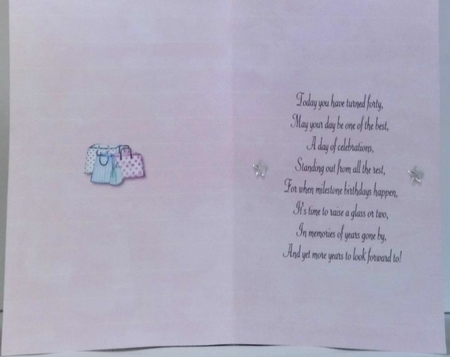 Today you have turned forty,
May your day be one of the best,
A day of celebrations,
Standing out from all the rest,
For when milestone birthdays happen,
It's time to raise a glass or two,
In memories of years gone by,
And yet more years to look forward to!